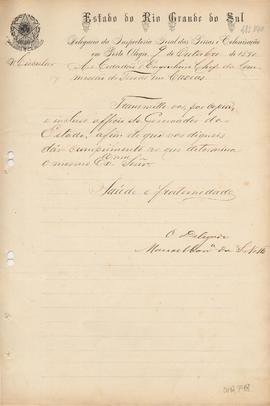 Estado do Rio Grande do Sul
Delegacia da Inspectoria Geral das Terras e Colonisação
em Porto Alegre, 9 de Outubro de 1890
Ao Cidadão Engenheiro Chefe da Com-
missão de Terras em
Transmitto vos, por copia,
o incluso officio do Governador do
Estado, afim de que vos digneis
dar cumprimento ao que determina
o mesmo Exmo Snr.
Saúde e fraternidade
O Delegado
Manoel